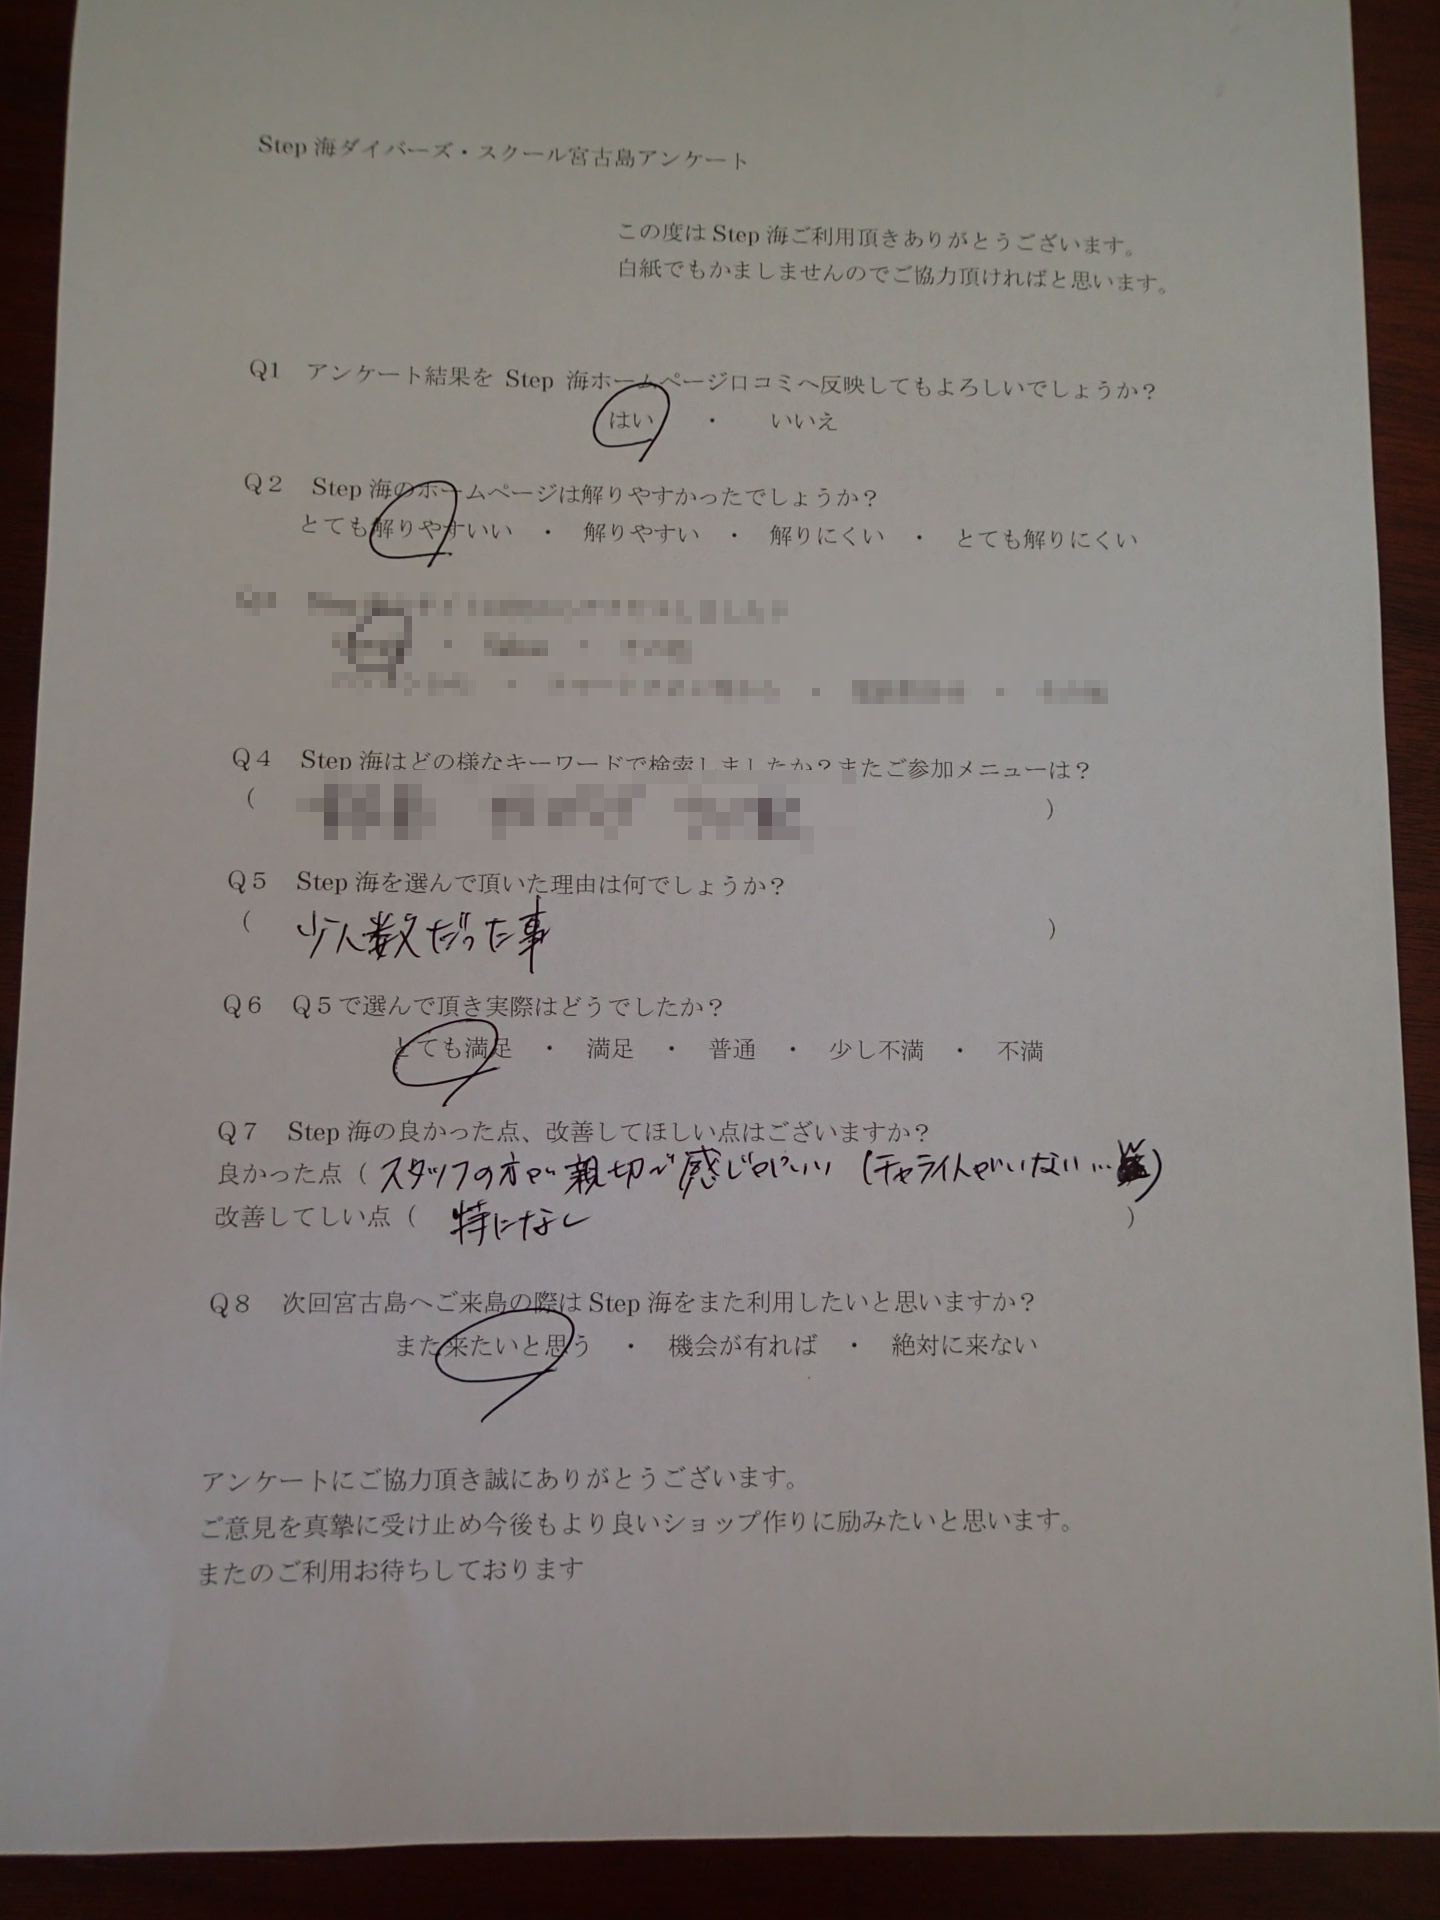 Step 海ダイバーズ・スクール宮古島アンケート
この度は Step 海ご利用頂きありがとうございます。
白紙でもかましませんのでご協力頂ければと思います。
Q1 アンケート結果を Step 海ホームページ口コミへ反映してもよろしいでしょうか?
はい ・ いいえ
Q2 Step 海のホームページは解りやすかったでしょうか?
とても解りやすいい ・ 解りやすい ・ 解りにくい ・ とても解りにくい
Q4 Step 海はどの様なキーワードで検索しましたか?またご参加メニューは?
( )
Q5 Step 海を選んで頂いた理由は何でしょうか?
( 少人数だった事 )
Q6 Q5で選んで頂き実際はどうでしたか?
とても満足 ・ 満足 ・ 普通 ・ 少し不満 ・ 不満
Q7 Step 海の良かった点、改善してほしい点はございますか?
良かった点 ( スタッフの方が親切で感じがいい (チャライ人がいない… )
改善してしい点 ( 特になし )
Q8 次回宮古島へご来島の際は Step 海をまた利用したいと思いますか?
また来たいと思う ・ 機会が有れば ・ 絶対に来ない
アンケートにご協力頂き誠にありがとうございます。
ご意見を真摯に受け止め今後もより良いショップ作りに励みたいと思います。
またのご利用お待ちしております